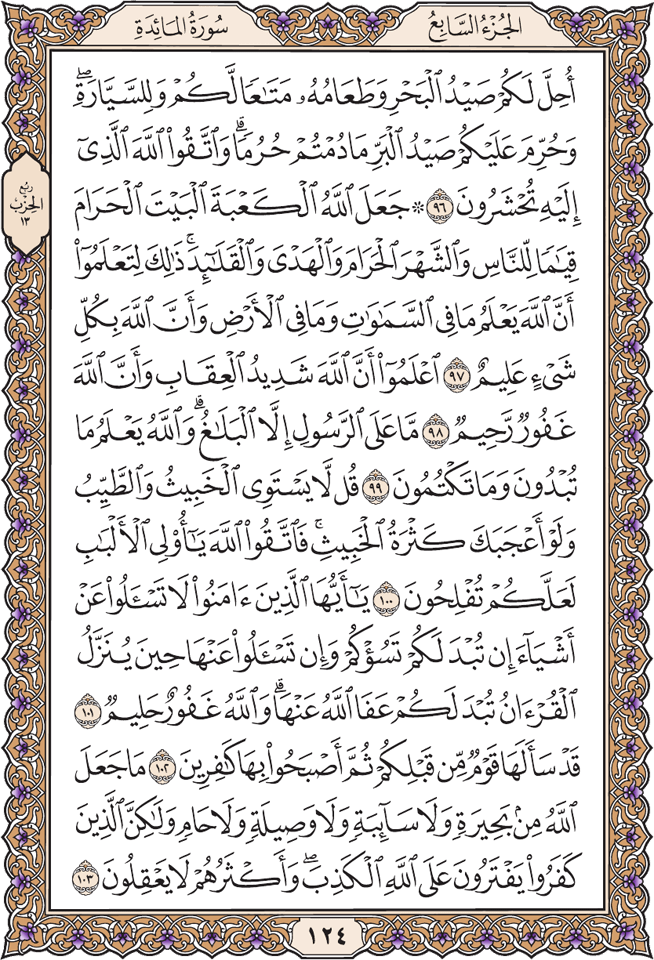 الجُزْءُ السَّابِعُ
سُورَةُ المَائِدَةِ
أُحِلَّ لَكُمْ صَيْدُ ٱلْبَحْرِ وَطَعَامُهُۥ مَتَٰعًا لَّكُمْ وَلِلسَّيَّارَةِۖ
وَحُرِّمَ عَلَيْكُمْ صَيْدُ ٱلْبَرِّ مَا دُمْتُمْ حُرُمًاۗ وَٱتَّقُوا۟ ٱللَّهَ ٱلَّذِىٓ
إِلَيْهِ تُحْشَرُونَ ٩٦ ۞ جَعَلَ ٱللَّهُ ٱلْكَعْبَةَ ٱلْبَيْتَ ٱلْحَرَامَ
رُبْعُ
الحِزْبِ
١٣
قِيَٰمًا لِّلنَّاسِ وَٱلشَّهْرَ ٱلْحَرَامَ وَٱلْهَدْىَ وَٱلْقَلَٰٓئِدَۚ ذَٰلِكَ لِتَعْلَمُوٓا۟
أَنَّ ٱللَّهَ يَعْلَمُ مَا فِى ٱلسَّمَٰوَٰتِ وَمَا فِى ٱلْأَرْضِ وَأَنَّ ٱللَّهَ بِكُلِّ
شَىْءٍ عَلِيمٌ ٩٧ ٱعْلَمُوٓا۟ أَنَّ ٱللَّهَ شَدِيدُ ٱلْعِقَابِ وَأَنَّ ٱللَّهَ
غَفُورٌ رَّحِيمٌ ٩٨ مَّا عَلَى ٱلرَّسُولِ إِلَّا ٱلْبَلَٰغُۗ وَٱللَّهُ يَعْلَمُ مَا
تُبْدُونَ وَمَا تَكْتُمُونَ ٩٩ قُل لَّا يَسْتَوِى ٱلْخَبِيثُ وَٱلطَّيِّبُ
وَلَوْ أَعْجَبَكَ كَثْرَةُ ٱلْخَبِيثِۚ فَٱتَّقُوا۟ ٱللَّهَ يَٰٓأُو۟لِى ٱلْأَلْبَٰبِ
لَعَلَّكُمْ تُفْلِحُونَ ١٠٠ يَٰٓأَيُّهَا ٱلَّذِينَ ءَامَنُوا۟ لَا تَسْـَٔلُوا۟ عَنْ
أَشْيَآءَ إِن تُبْدَ لَكُمْ تَسُؤْكُمْ وَإِن تَسْـَٔلُوا۟ عَنْهَا حِينَ يُنَزَّلُ
ٱلْقُرْءَانُ تُبْدَ لَكُمْ عَفَا ٱللَّهُ عَنْهَاۗ وَٱللَّهُ غَفُورٌ حَلِيمٌ ١٠١
قَدْ سَأَلَهَا قَوْمٌ مِّن قَبْلِكُمْ ثُمَّ أَصْبَحُوا۟ بِهَا كَٰفِرِينَ ١٠٢ مَا جَعَلَ
ٱللَّهُ مِنۢ بَحِيرَةٍ وَلَا سَآئِبَةٍ وَلَا وَصِيلَةٍ وَلَا حَامٍ وَلَٰكِنَّ ٱلَّذِينَ
كَفَرُوا۟ يَفْتَرُونَ عَلَى ٱللَّهِ ٱلْكَذِبَۖ وَأَكْثَرُهُمْ لَا يَعْقِلُونَ ١٠٣
١٢٤